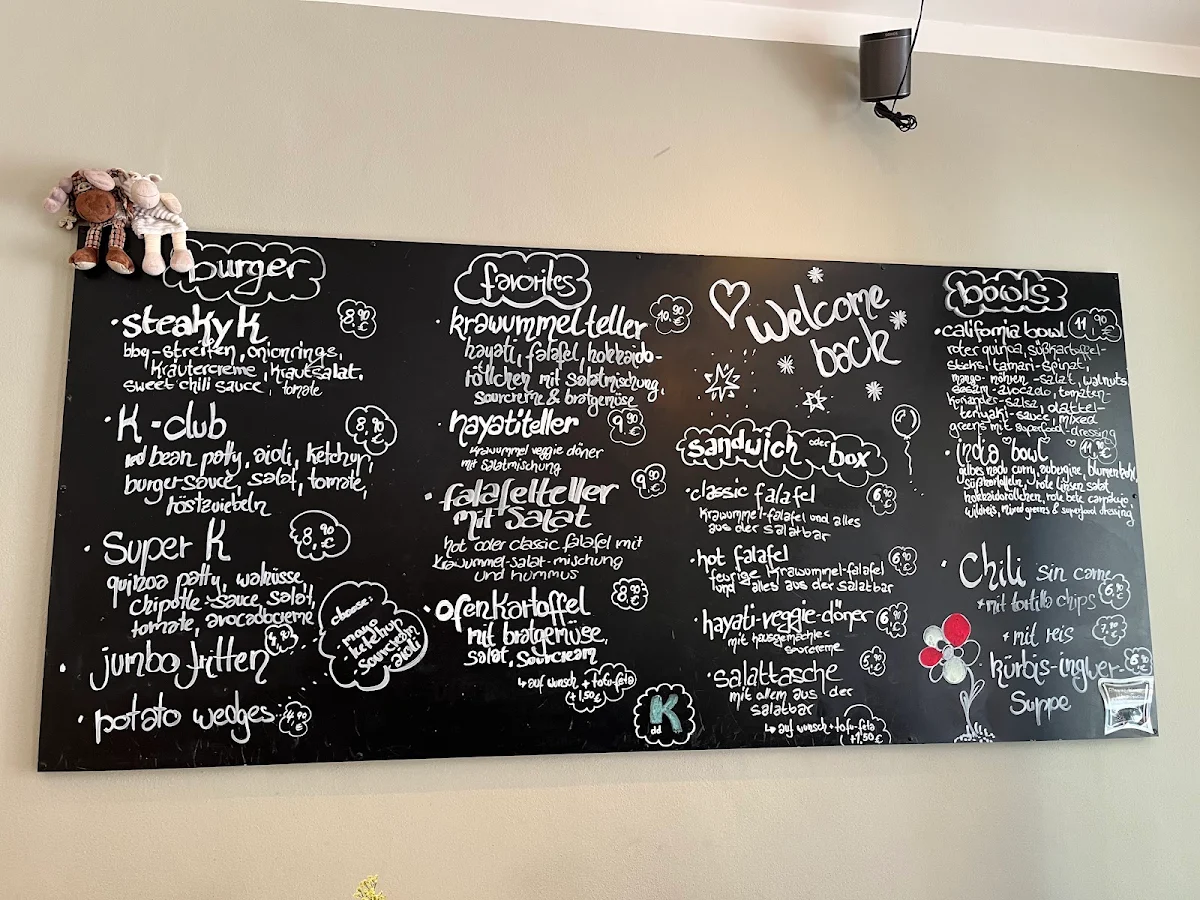 burger
steaky K 8,90 €
bbq-streifen, onionrings,
Kräutercreme, Krautsalat,
sweet chili sauce, tomate
K-club 8,90 €
red bean patty, aioli, ketchup,
burger-sauce, salat, tomate,
röstzwiebeln
Super K 8,90 €
quinoa patty, walnüsse,
chipotle-sauce salat,
tomate, avocadocreme
jumbo fritten 4,90
potato wedges 4,90 €
choose:
mayo
ketchup
sourcream
aioli
favorites
krawummelteller 10,90 €
hayati, falafel, hokkaido-
röllchen mit salatmischung,
sourcreme & bratgemüse
hayatiteller 9,90 €
krawummel veggie döner
mit salatmischung
falafelteller 9,90 €
mit salat
hot oder classic falafel mit
krawummel-salat-mischung
und hummus
ofenkartoffel 8,90 €
mit bratgemüse,
salat, sourcream
↳ auf wunsch + tofu-feta
(+1,50€)
K
dd
Welcome
back
sandwich oder box
classic falafel 6,90 €
krawummel-falafel und alles
aus der salatbar
hot falafel 6,90 €
feurige krawummel-falafel
und alles aus der salatbar
hayati-veggie-döner 6,90 €
mit hausgemachter
sourcreme
salattasche 5,90 €
mit allem aus der
salatbar
↳ auf wunsch + tofu-feta
+1,50 €
bowls
california bowl 11,90 €
roter quinoa, süßkartoffel-
sticks, tamari-spinat,
mango-möhren-salat, walnuts
sesam-avocado, tomaten-
koriander-salsa, dattel-
teriyaki-sauce, mixed
greens mit superfood-dressing
india bowl 11,90 €
gelbes curry, aubergine, blumenkohl,
süßkartoffeln, rote linsen salat
hokkaidoröllchen, rote bete carpaccio,
wildreis, mixed greens & superfood dressing
Chili sin carne
+ mit tortilla chips 6,90 €
+ mit reis 7,90 €
kürbis-ingwer-
Suppe